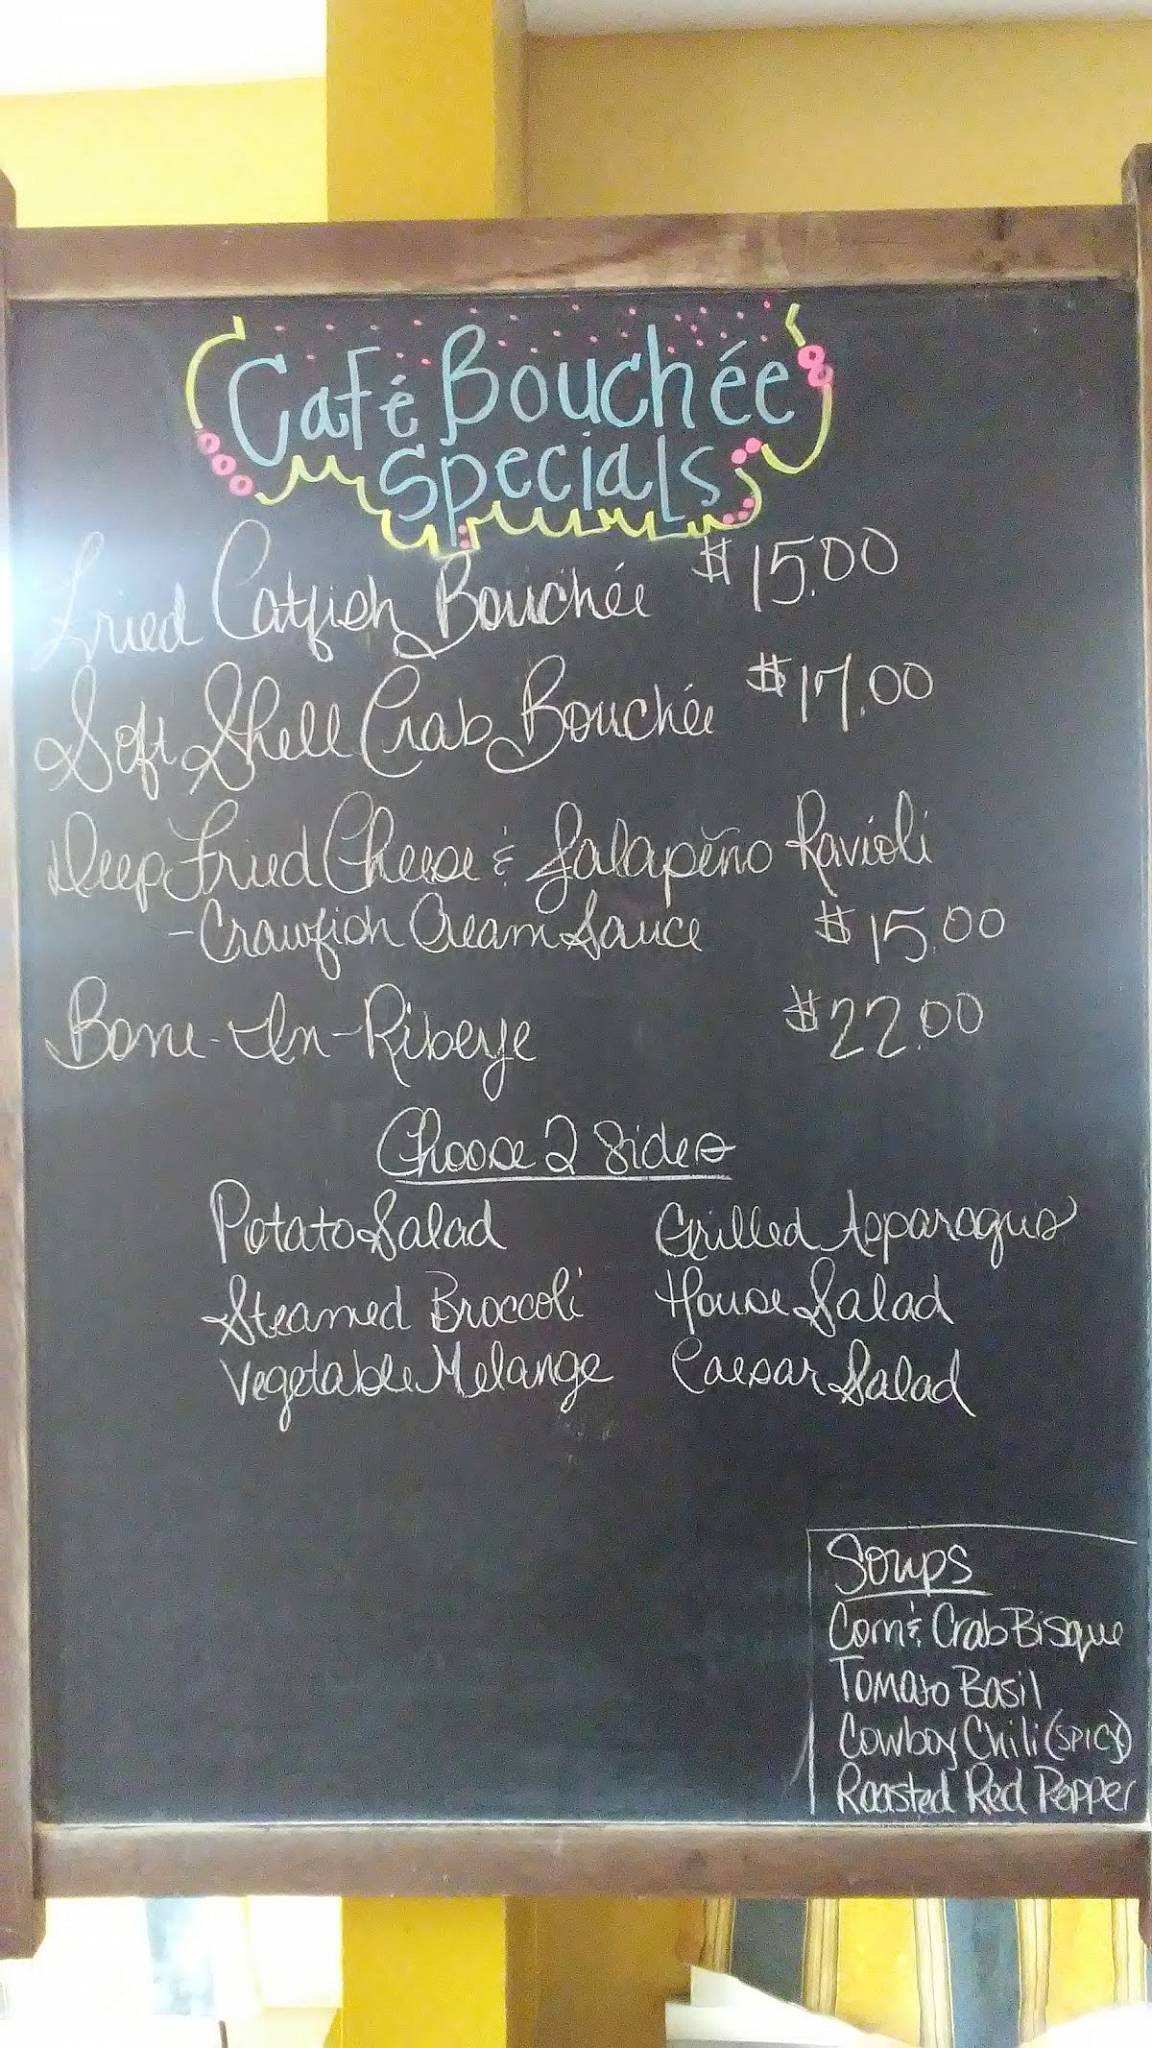 Café Bouchée
Specials
Fried Catfish Bouchée $15.00
Soft Shell Crab Bouchée $17.00
Deep Fried Cheese & Jalapeño Ravioli
-Crawfish Cream Sauce $15.00
Bone-In-Ribeye $22.00
Choose 2 Sides
Potato Salad Grilled Asparagus
Steamed Broccoli House Salad
Vegetable Melange Caesar Salad
Soups
Corn & Crab Bisque
Tomato Basil
Cowboy Chili (SPICY)
Roasted Red Pepper